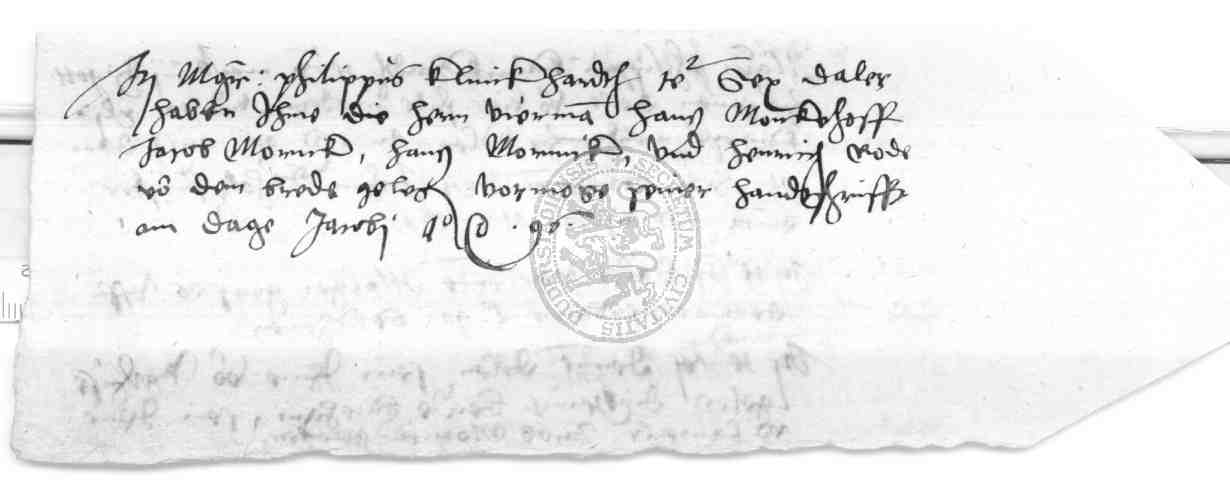 Mgr: philippus klinckhardt te² Sex daler
habenn Ihme die herrn vierma hans Monckhoff
Jacob Mornick, hans Mornnick, vnd henrich Rode
vs dem brede geleg vormoge seiner handtschrifft
am dage Jacobi a° d . 96 .
SECRETUM CIVITATIS DUDERS